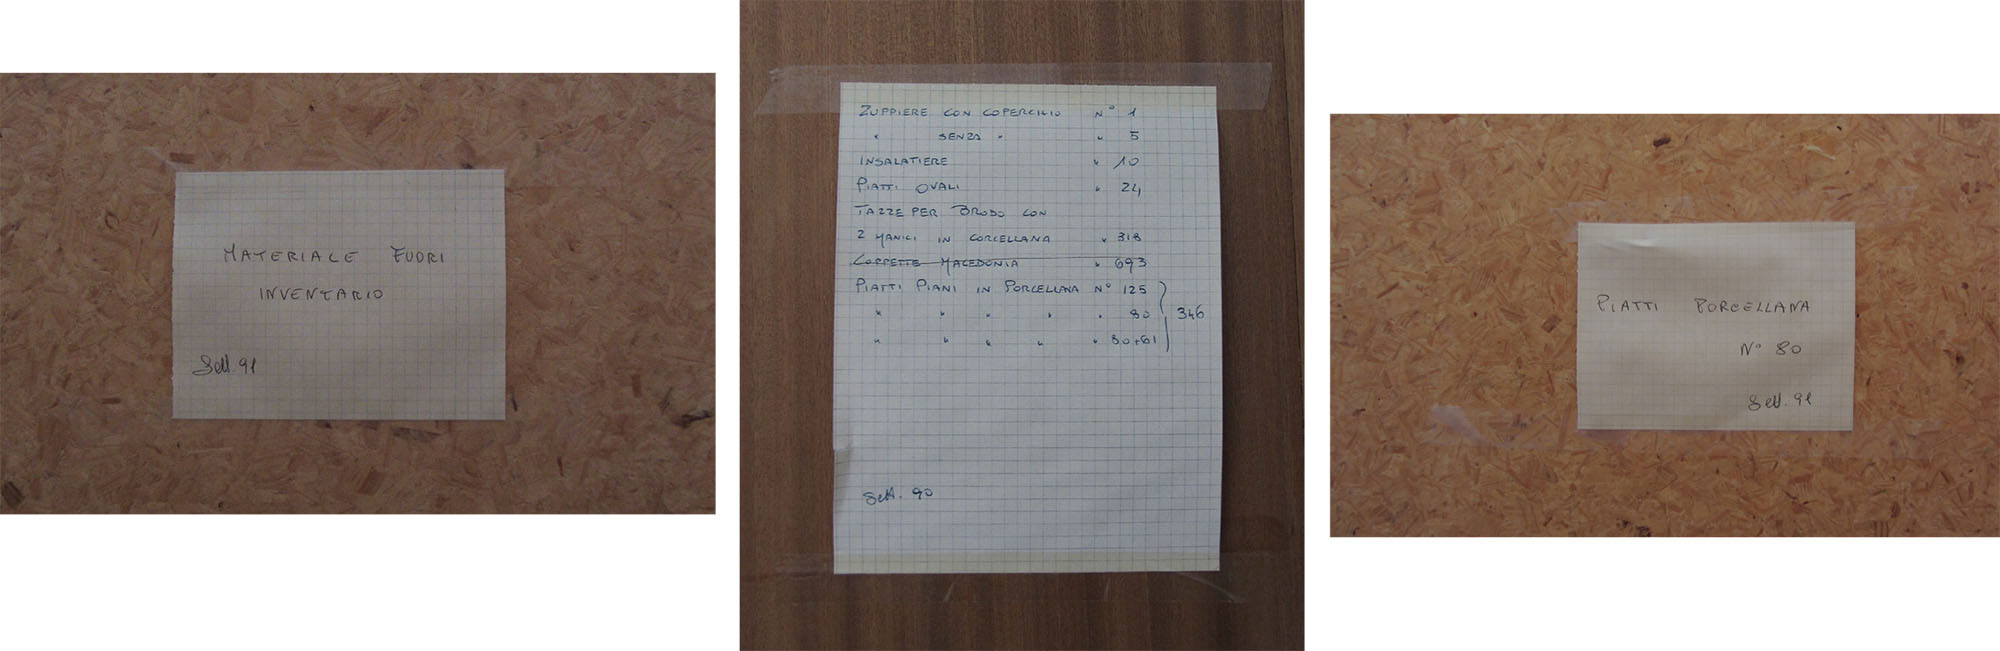 MATERIALE FUORI
INVENTARIO
Sett. 91
ZUPPIERE CON COPERCHIO N° 1
" SENZA " " 5
INSALATIERE " 10
PIATTI OVALI " 24
TAZZE PER BRODO CON
2 MANICI IN PORCELLANA " 318
COPPETTE MACEDONIA " 693
PIATTI PIANI IN PORCELLANA N° 125
" " " " " 80 346
" " " " " 80+61
Sett. 90
PIATTI PORCELLANA
N° 80
Sett. 91